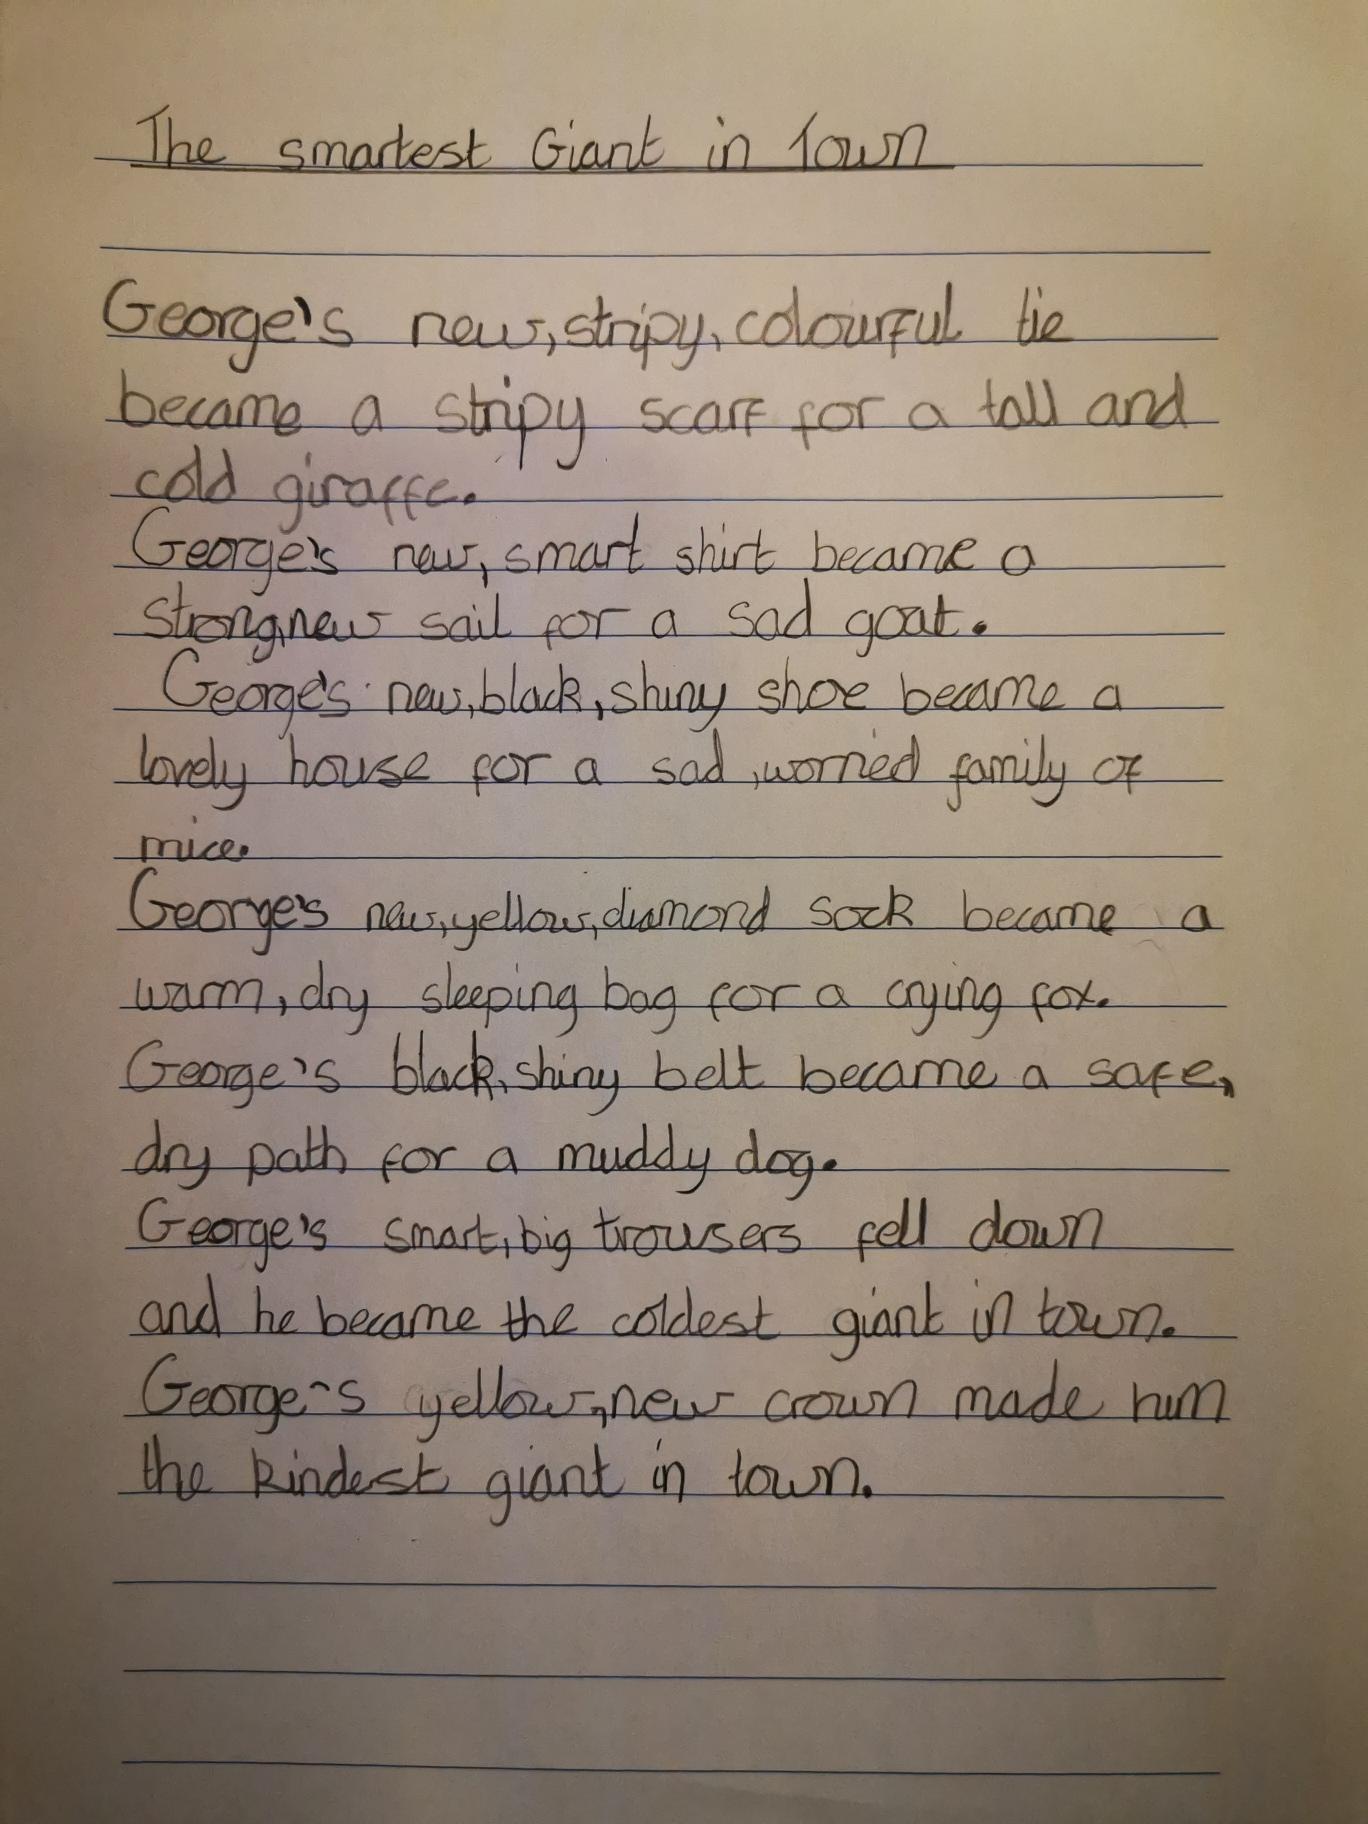 The smartest Giant in Town
George's new, stripy, colourful tie
became a stripy scarf for a tall and
cold giraffe.
George's new, smart shirt became a
strong,new sail for a sad goat.
George's new,black,shiny shoe became a
lovely house for a sad ,worried family of
mice.
George's new,yellow,diamond sock became a
warm, dry sleeping bag for a crying fox.
George's black, shiny belt became a safe,
dry path for a muddy dog.
George's smart, big trousers fell down
and he became the coldest giant in town.
George's yellow,new crown made him
the kindest giant in town.